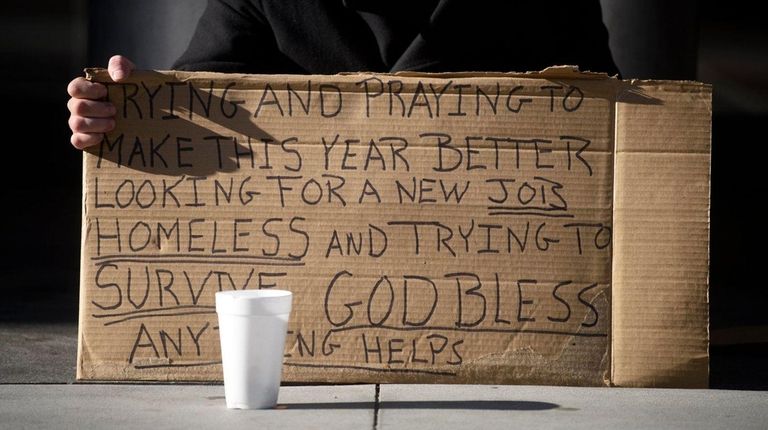 TRYING AND PRAYING TO
MAKE THIS YEAR BETTER
LOOKING FOR A NEW JOB
HOMELESS AND TRYING TO
SURVIVE GOD BLESS
ANYTHING HELPS